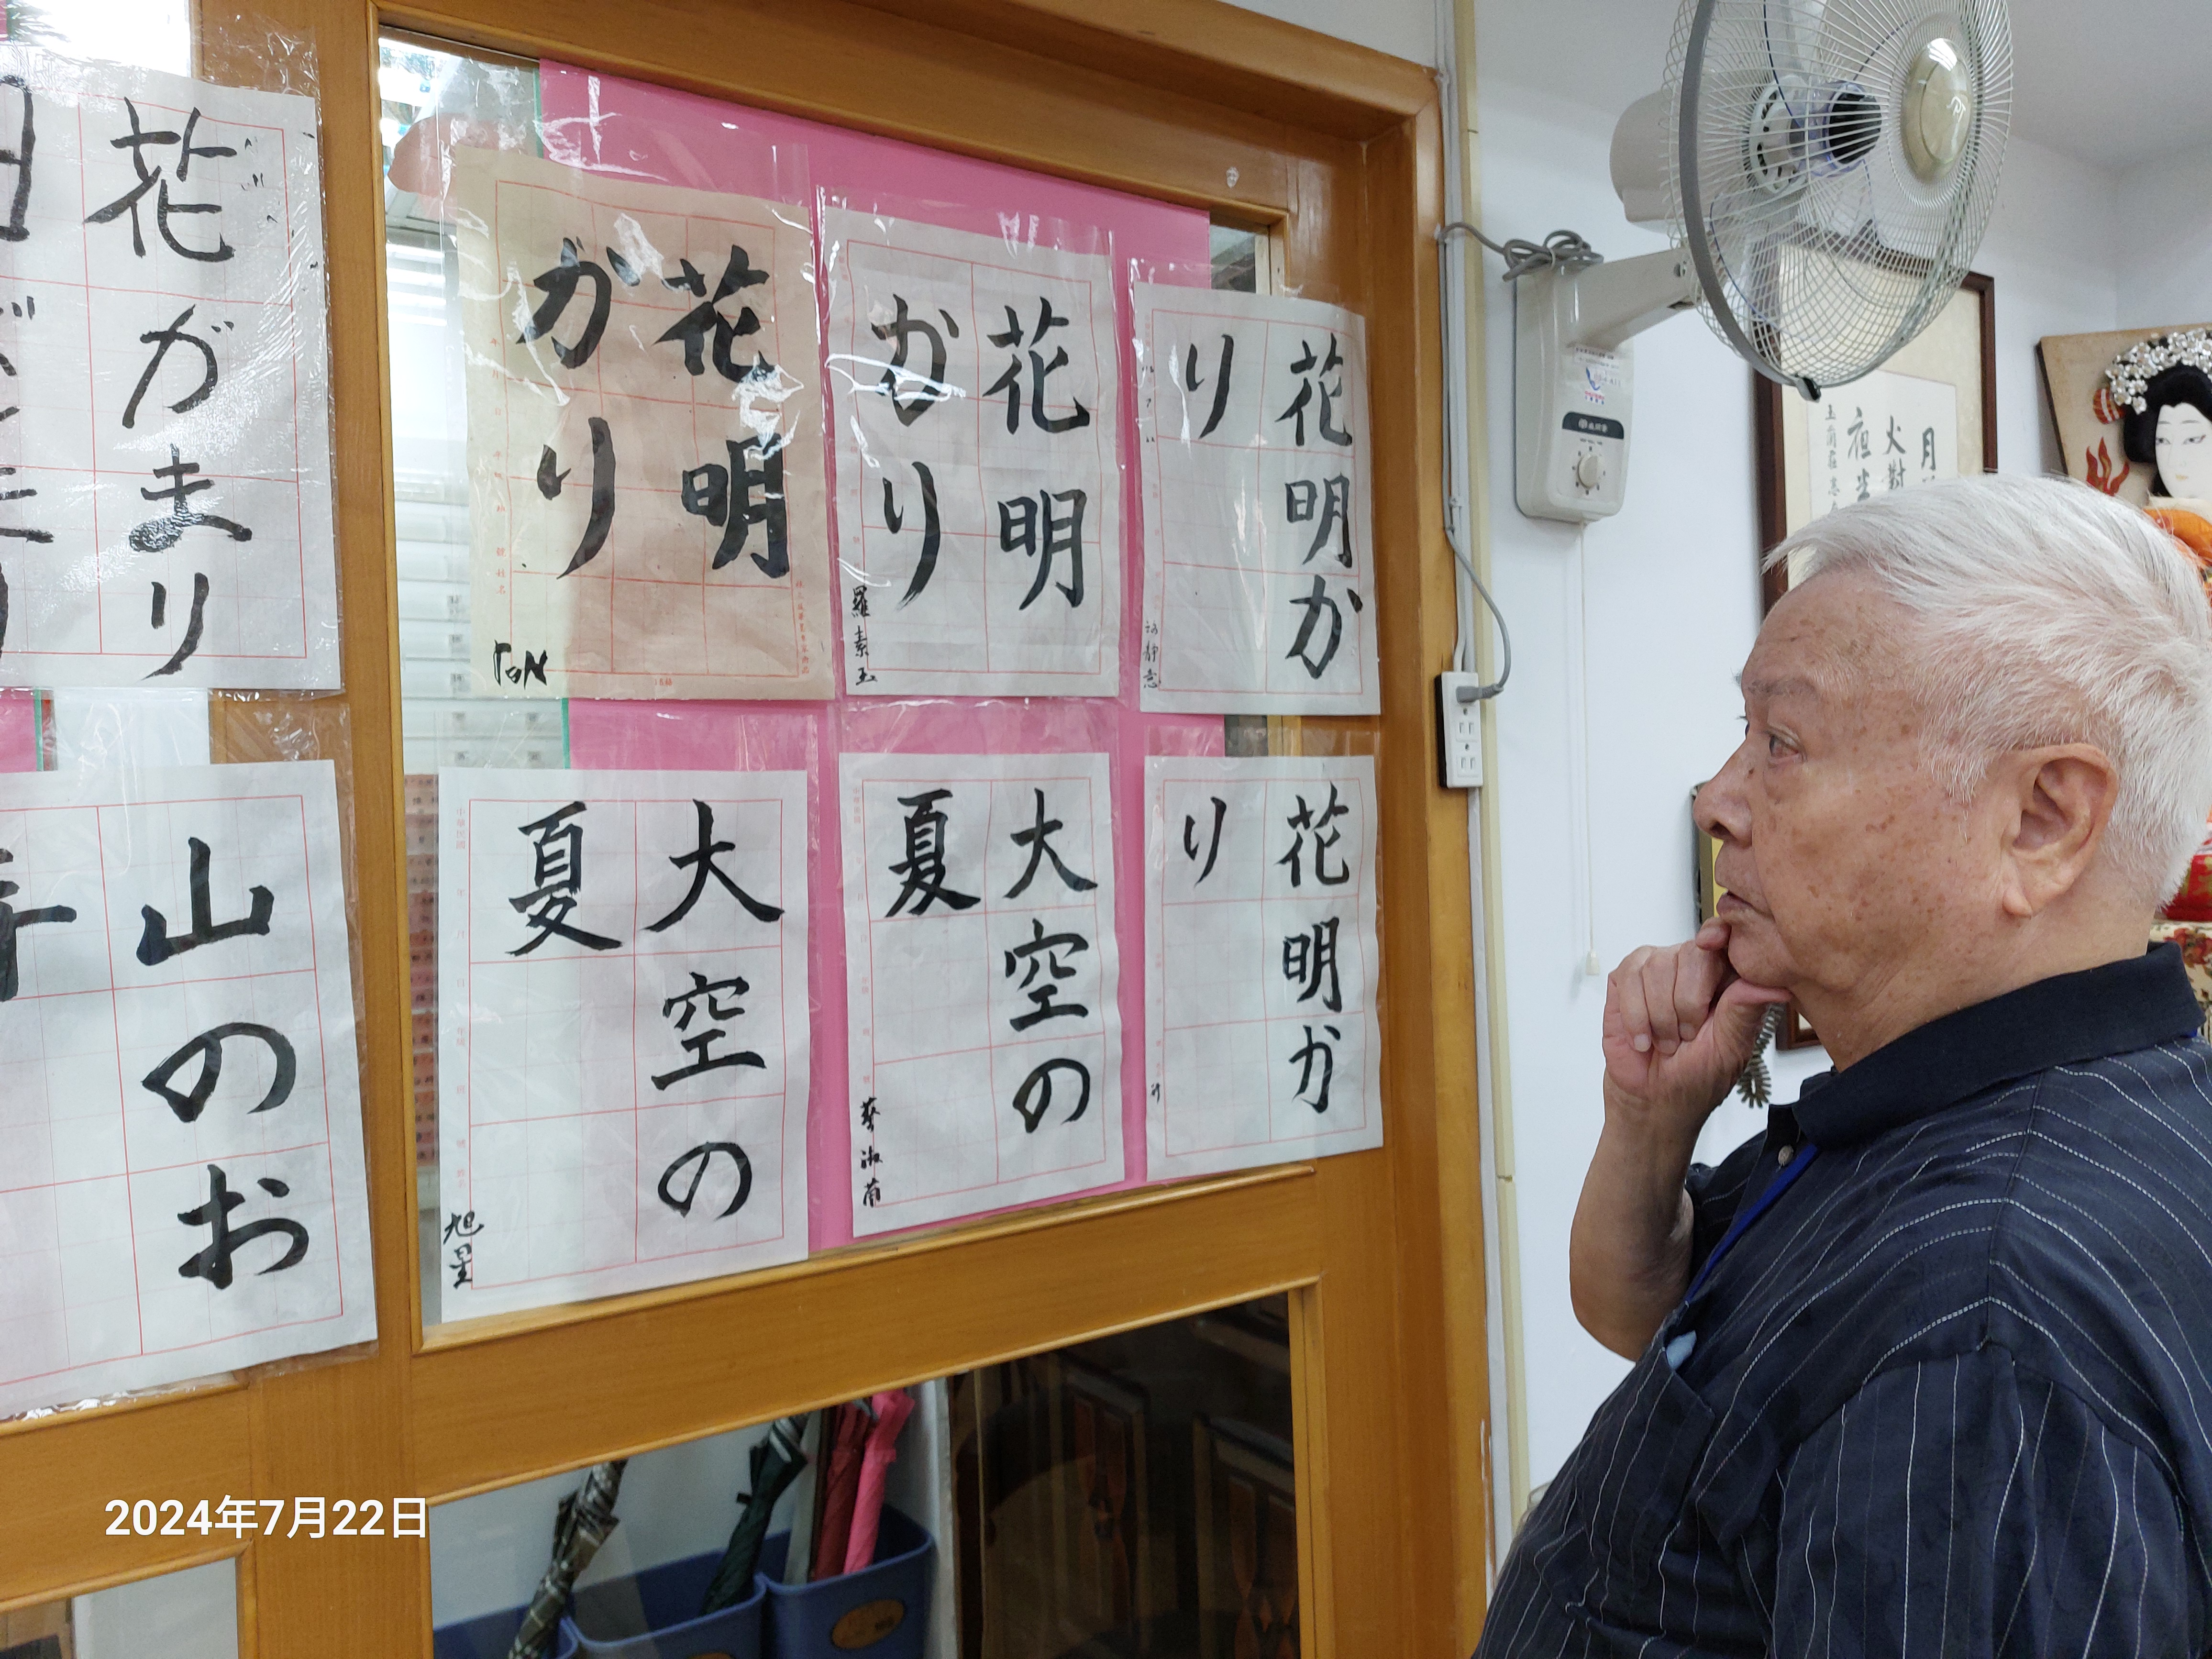 花がまり
山のお
花明
かり
TON
花明
かり
羅素玉
花明か
り
大空の
夏
旭星
大空の
夏
花明か
り
月
火對
2024年7月22日